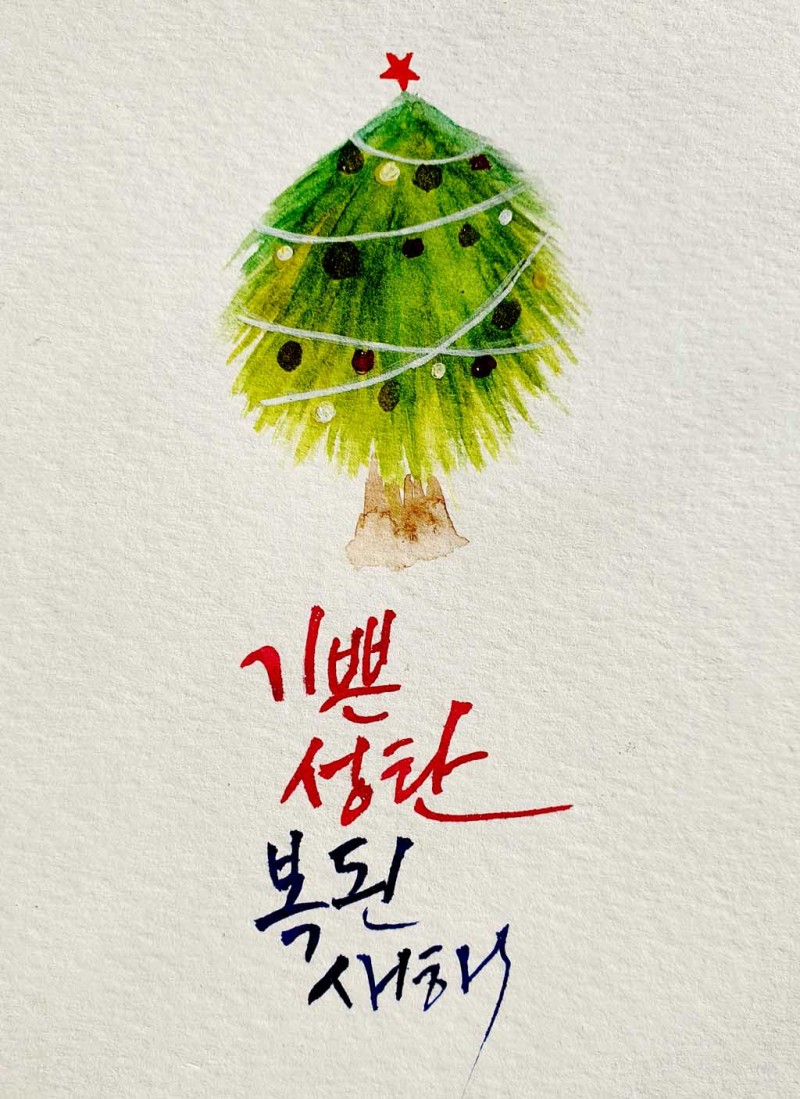 기쁜
성탄
복된
새해